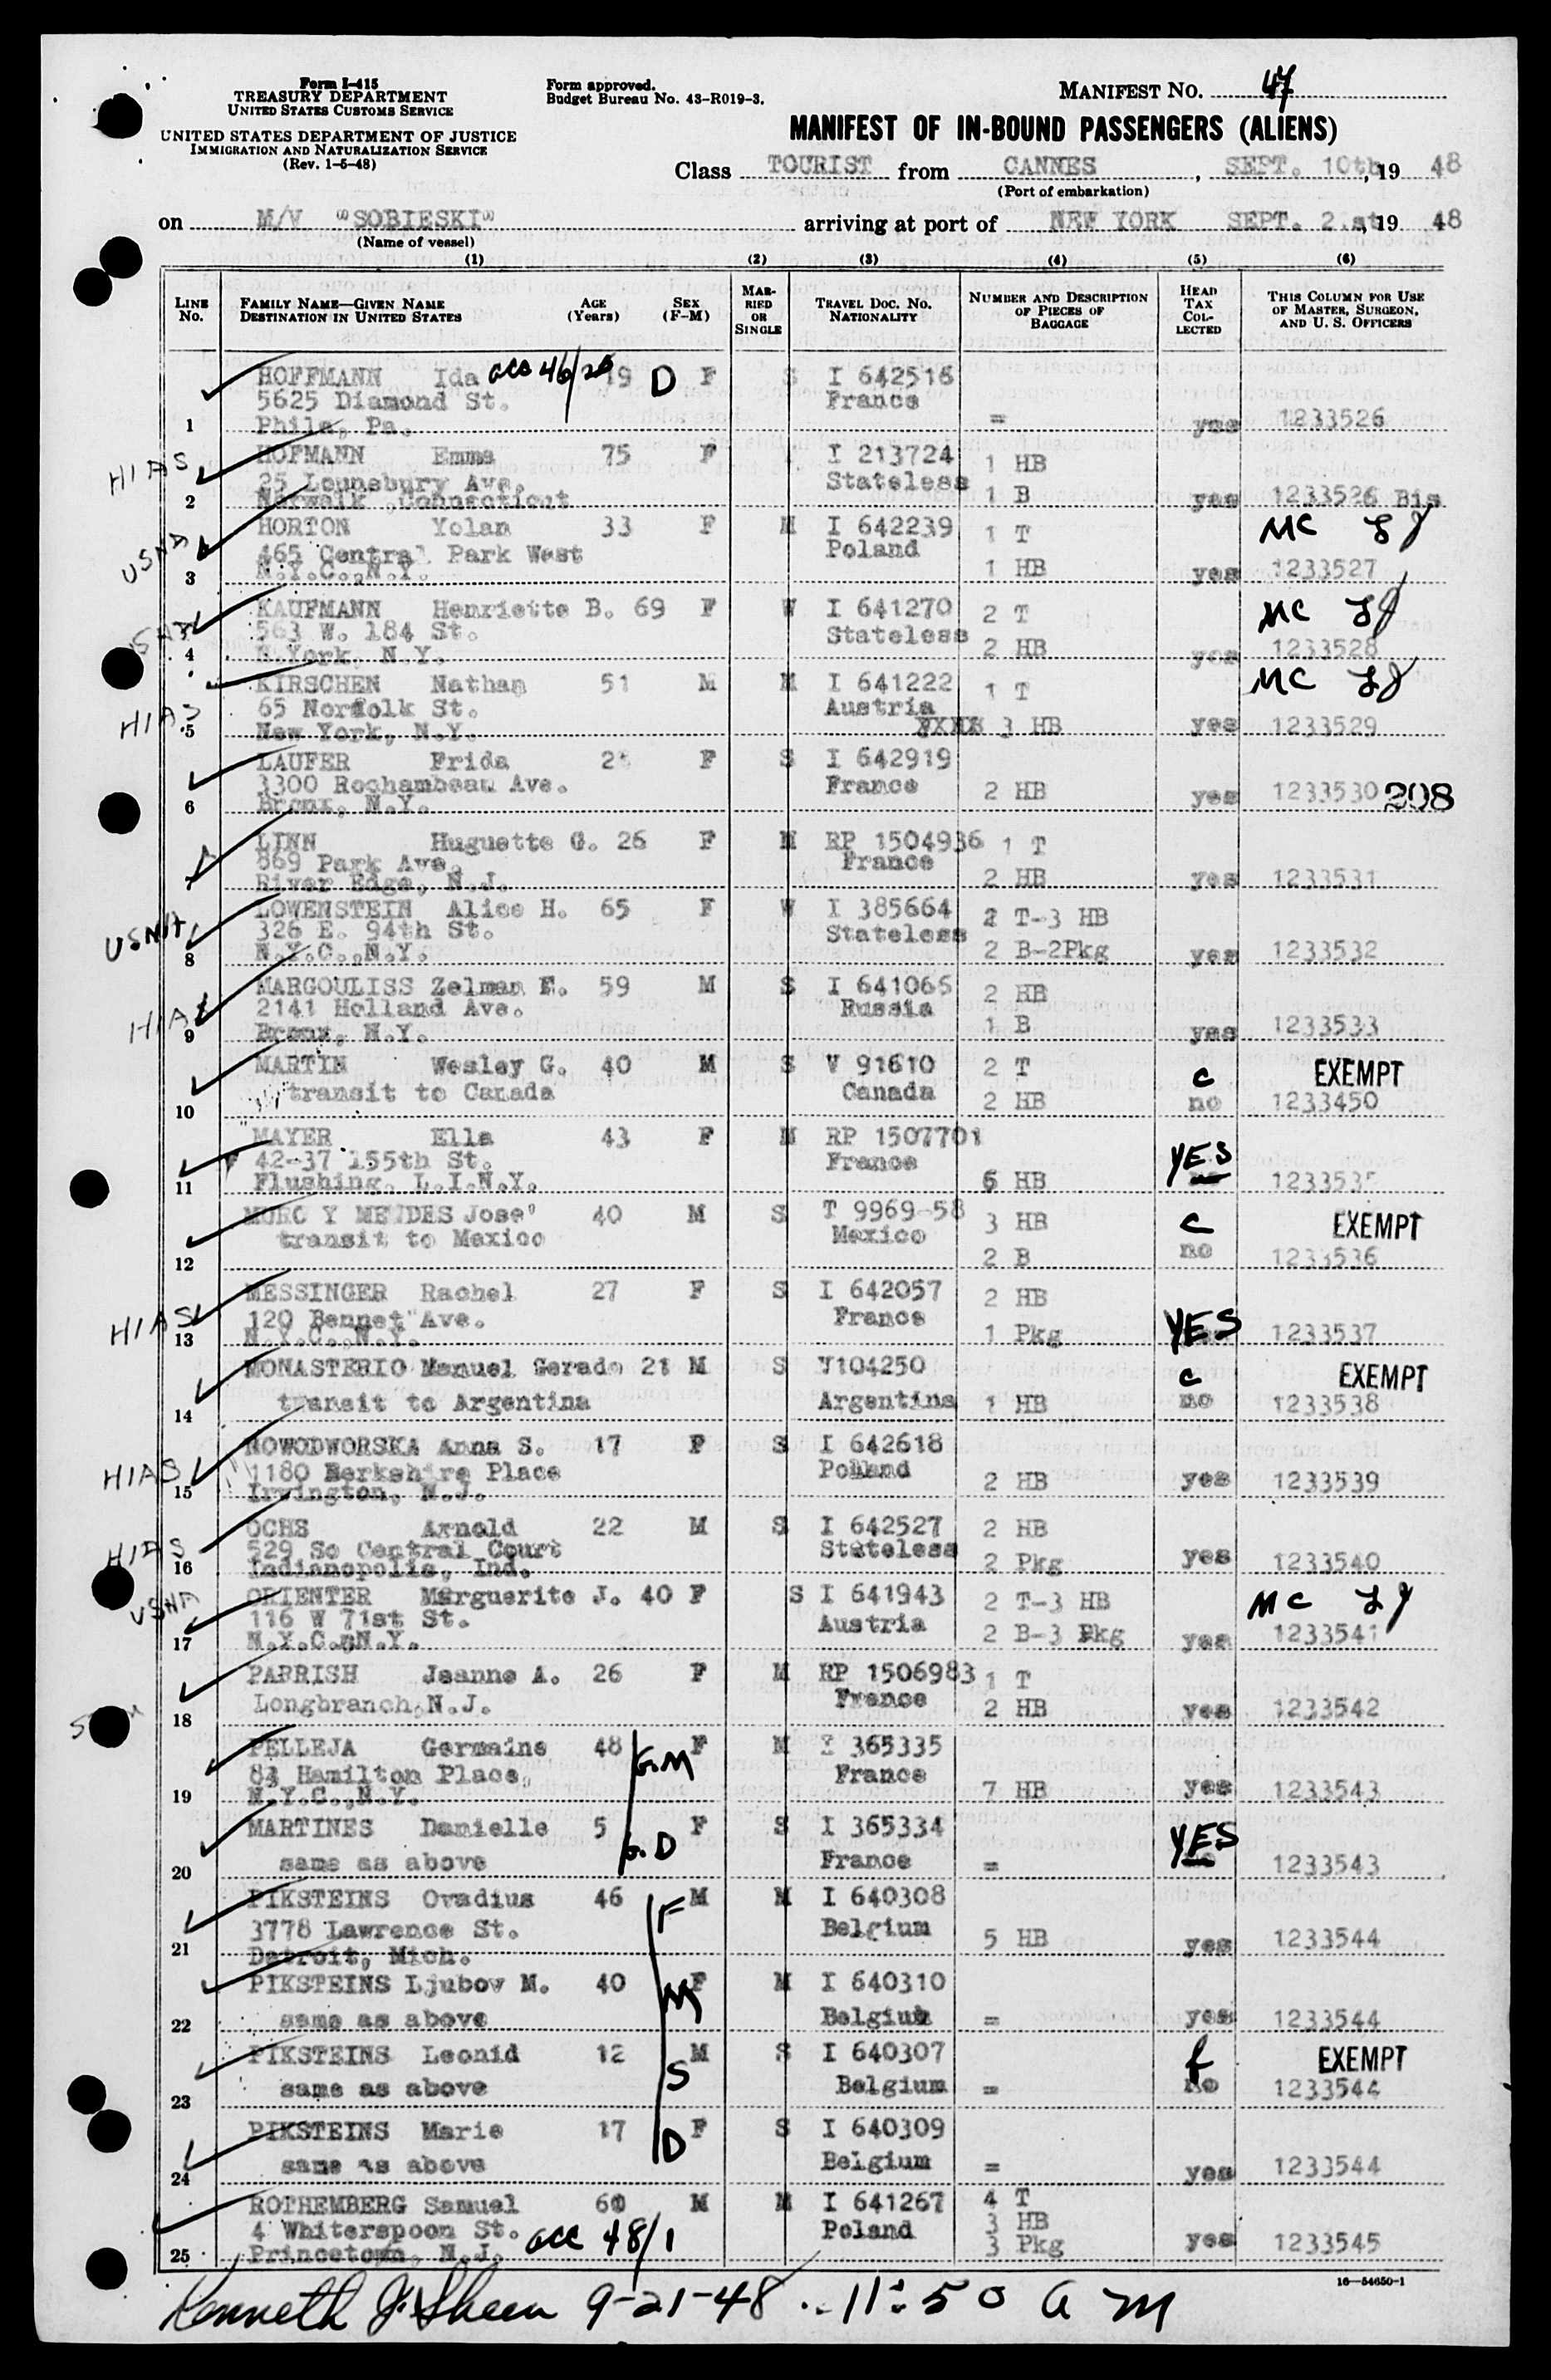 Form I-415
TREASURY DEPARTMENT
UNITED STATES CUSTOMS SERVICE
UNITED STATES DEPARTMENT OF JUSTICE
IMMIGRATION AND NATURALIZATION SERVICE
(Rev. 1-5-48)
Form approved.
Budget Bureau No. 43-R019-3.
MANIFEST NO. 47
MANIFEST OF IN-BOUND PASSENGERS (ALIENS)
Class TOURIST from CANNES, SEPT. 10th, 19 48
(Port of embarkation)
on M/V "SOBIESKI" arriving at port of NEW YORK SEPT. 2.st, 19 48
(Name of vessel)
(1) (2) (3) (4) (5) (6)
LINE No. FAMILY NAME—GIVEN NAME DESTINATION IN UNITED STATES AGE (Years) SEX (F-M) MARRIED OR SINGLE TRAVEL DOC. NO. NATIONALITY NUMBER AND DESCRIPTION OF PIECES OF BAGGAGE HEAD TAX COLLECTED THIS COLUMN FOR USE OF MASTER, SURGEON, AND U. S. OFFICERS
HOFFMANN Ida acc 46/26 19 D F S I 642516
5625 Diamond St. France
1 Phila, Pa. = yes 1233526
HIAS HOFMANN Emma 75 F I 213724 1 HB
25 Lounsbury Ave. Stateless
2 Norwalk, Connecticut 1 B yes 1233526 Bis
USNA HORTON Yolan 33 F M I 642239 1 T MC
465 Central Park West Poland
3 N.Y.C., N.Y. 1 HB yes 1233527
KAUFMANN Henriette B. 69 F W I 641270 2 T MC
563 W. 184 St. Stateless
4 N.York, N.Y. 2 HB yes 1233528
KIRSCHEN Nathan 51 M M I 641222 1 T MC
65 Norfolk St. Austria
HIAS 5 New York, N.Y. 3 HB yes 1233529
LAUFER Frida F S I 642919
3300 Rochambeau Ave. France 2 HB yes 1233530 208
6 Bronx, N.Y.
LINN Huguette G. 26 F M RP 1504936 1 T
869 Park Ave. France
River Edge, N.J. 2 HB yes 1233531
USNA LOWENSTEIN Alice H. 65 F W I 385664 2 T-3 HB
326 E. 94th St. Stateless
8 N.Y.C., N.Y. 2 B-2Pkg yes 1233532
HIAS MARGOULISS Zelman E. 59 M S I 641065 2 HB
2141 Holland Ave. Russia
9 Bronx, N.Y. 1 B yes 1233533
MARTIN Wesley G. 40 M S V 91610 2 T c EXEMPT
10 transit to Canada Canada 2 HB no 1233450
MAYER Ella 43 F M RP 1507701
42-37 155th St. France YES
11 Flushing, L.I.N.Y. 6 HB
MORO Y MENDES Jose' 40 M S T 9969-58 3 HB c EXEMPT
transit to Mexico Mexico
12 2 B no 1233536
MESSINGER Rachel 27 F S I 642057 2 HB
HIAS 120 Bennet Ave. France
13 N.Y.C., N.Y. 1 Pkg YES 1233537
MONASTERIO Manuel Gerado 21 M S V104250 c EXEMPT
14 transit to Argentina Argentina 1 HB no 1233538
NOWODWORSKA Anna S. 17 F S I 642618
HIAS 1180 Berkshire Place Poland
15 Irvington, N.J. 2 HB yes 1233539
OCHS Arnold 22 M S I 642527 2 HB
HIAS 529 So Central Court Stateless
16 Indianopolis, Ind. 2 Pkg yes 1233540
USNA ORIENTER Marguerite J. 40 F S I 641943 2 T-3 HB MC
116 W 71st St. Austria
17 N.Y.C., N.Y. 2 B-3 Pkg yes 1233541
PARRISH Jeanne A. 26 F M RP 1506983 1 T
18 Longbranch, N.J. France 2 HB yes 1233542
PELLEJA Germaine 48 G.M F M I 365335
83 Hamilton Place, France
19 N.Y.C., N.Y. 7 HB yes 1233543
MARTINES Danielle 5 G.D F S I 365334 YES
20 same as above France = 1233543
PIKSTEINS Ovadius 46 F M M I 640308
3778 Lawrence St. Belgium
21 Detroit, Mich. 5 HB yes 1233544
PIKSTEINS Ljubov M. 40 M F M I 640310
22 same as above Belgium = yes 1233544
PIKSTEINS Leonid 12 S M S I 640307 f EXEMPT
23 same as above Belgium = no 1233544
PIKSTEINS Marie 17 D F S I 640309
24 same as above Belgium = yes 1233544
ROTHEMBERG Samuel 60 M M I 641267 4 T
4 Whiterspoon St. acc 48/1 Poland 3 HB
25 Princetown, N.J. 3 Pkg yes 1233545
16—54650-1
Kenneth J. Sheen 9-21-48 .. 11:50 a m